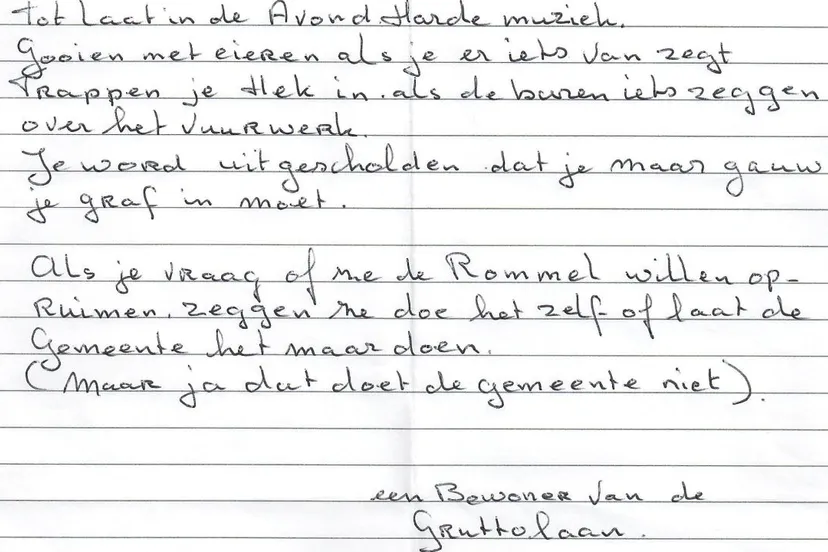 Tot Laat in de Avond Harde muziek.
Gooien met eieren als je er iets van zegt
Trappen je Hek in. als de buren iets zeggen
over het vuurwerk.
Je word uitgescholden dat je maar gauw
je graf in moet.
Als je vraag of me de Rommel willen op-
Ruimen. zeggen ne doe het zelf of laat de
Gemeente het maar doen.
(Maar ja dat doet de gemeente niet).
een Bewoner van de
Gruttolaan.